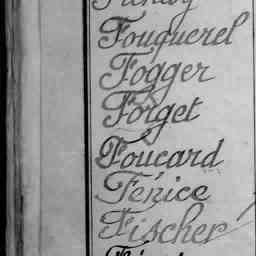 Fouquerel
Fogger
Forget
Foucard
Fénice
Fischer